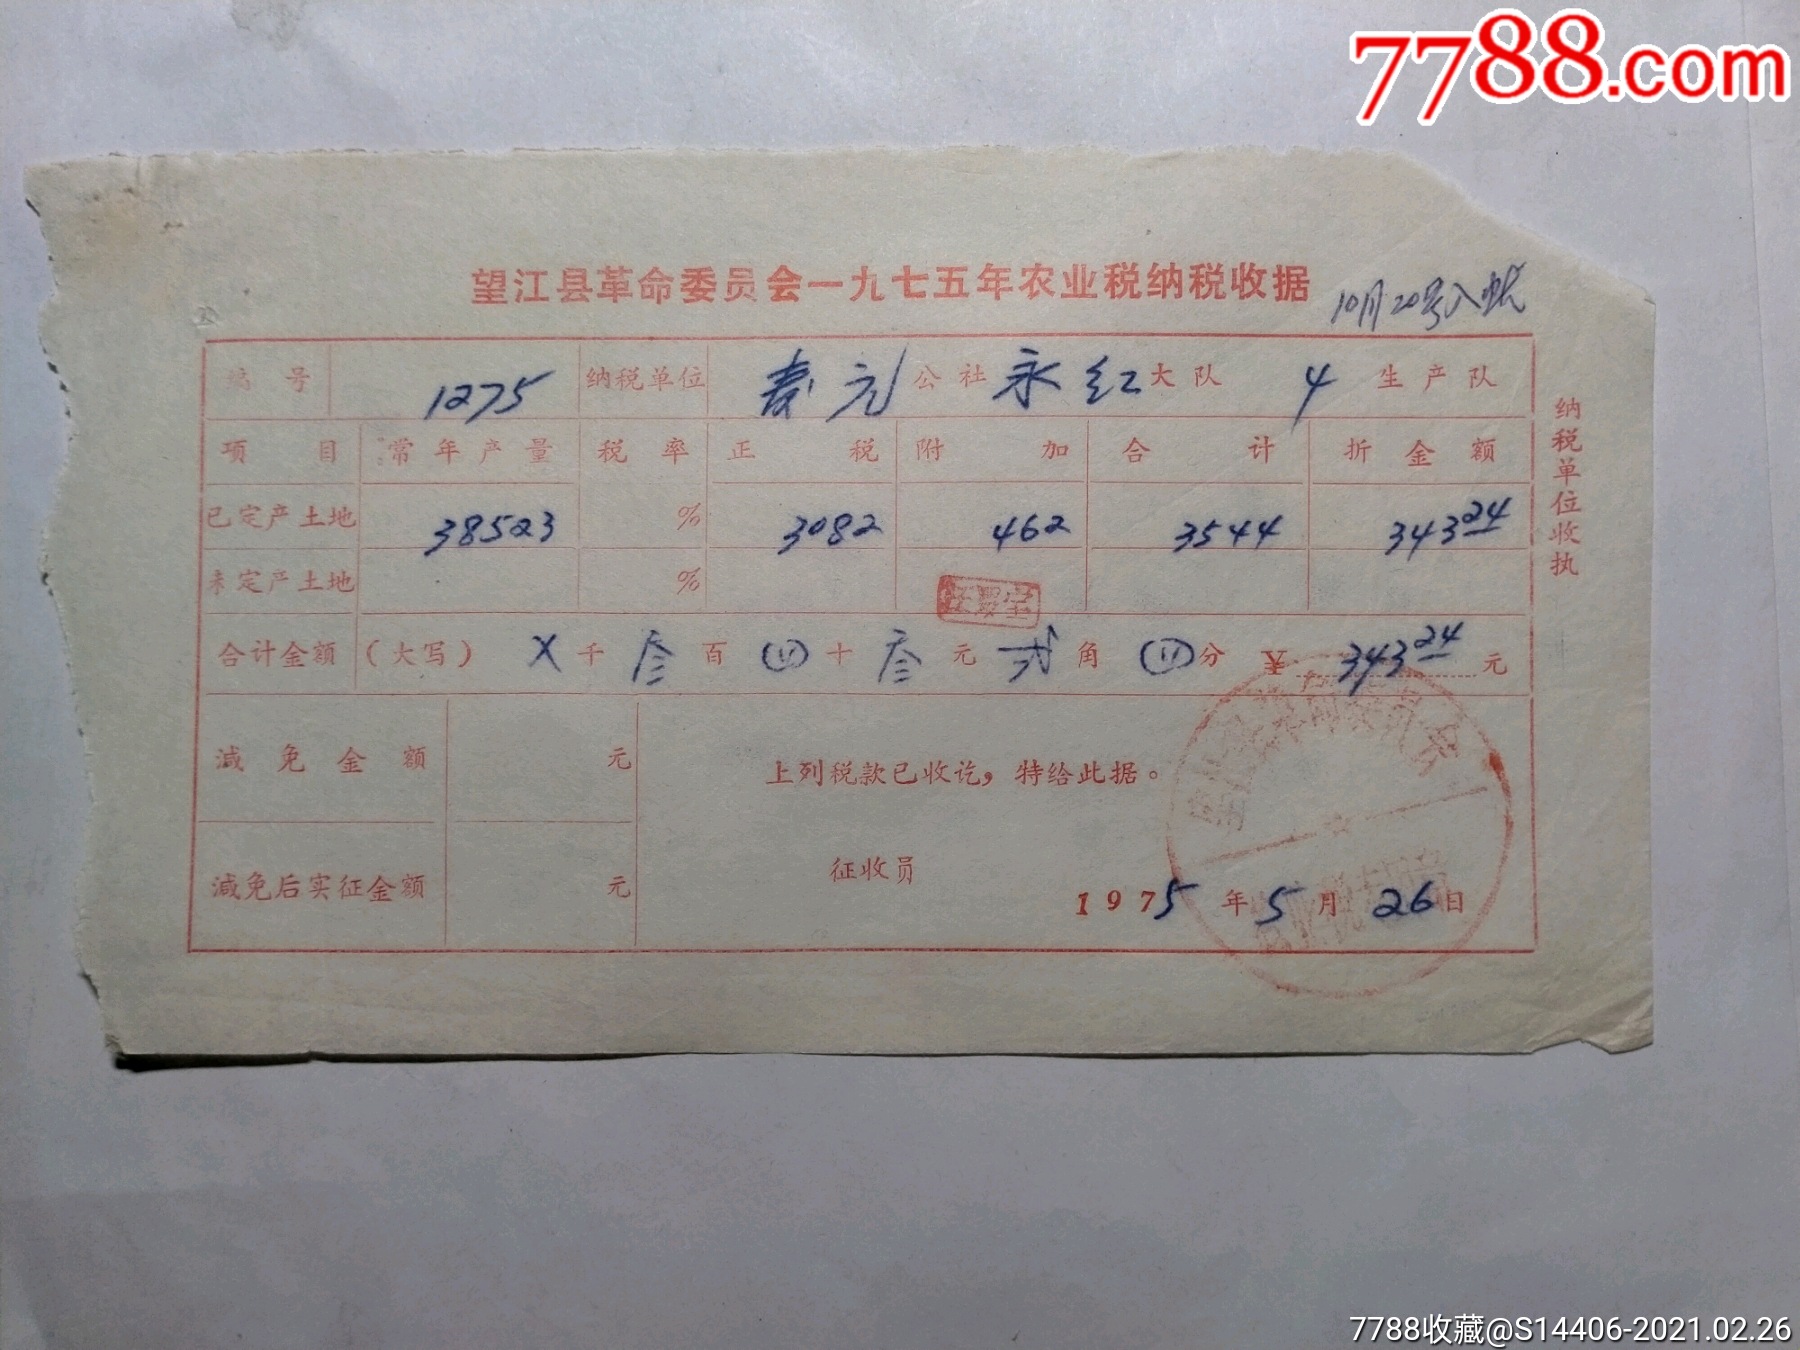 7788.com
望江县革命委员会一九七五年农业税纳税收据
10月20号入帐
编号 1275 纳税单位 寿元 公社 永红 大队 4 生产队
项目 常年产量 税率 正税 附加 合计 折金额
已定产土地 38523 % 3082 462 3544 343 24
未定产土地 %
合计金额 (大写) X 千 叁 百 四 十 叁 元 弍 角 四 分 ¥ 343 24 元
减免金额 元
上列税款已收讫，特给此据。
减免后实征金额 元
征收员
1975 年 5 月 26 日
纳税单位收执
7788收藏@S14406-2021.02.26